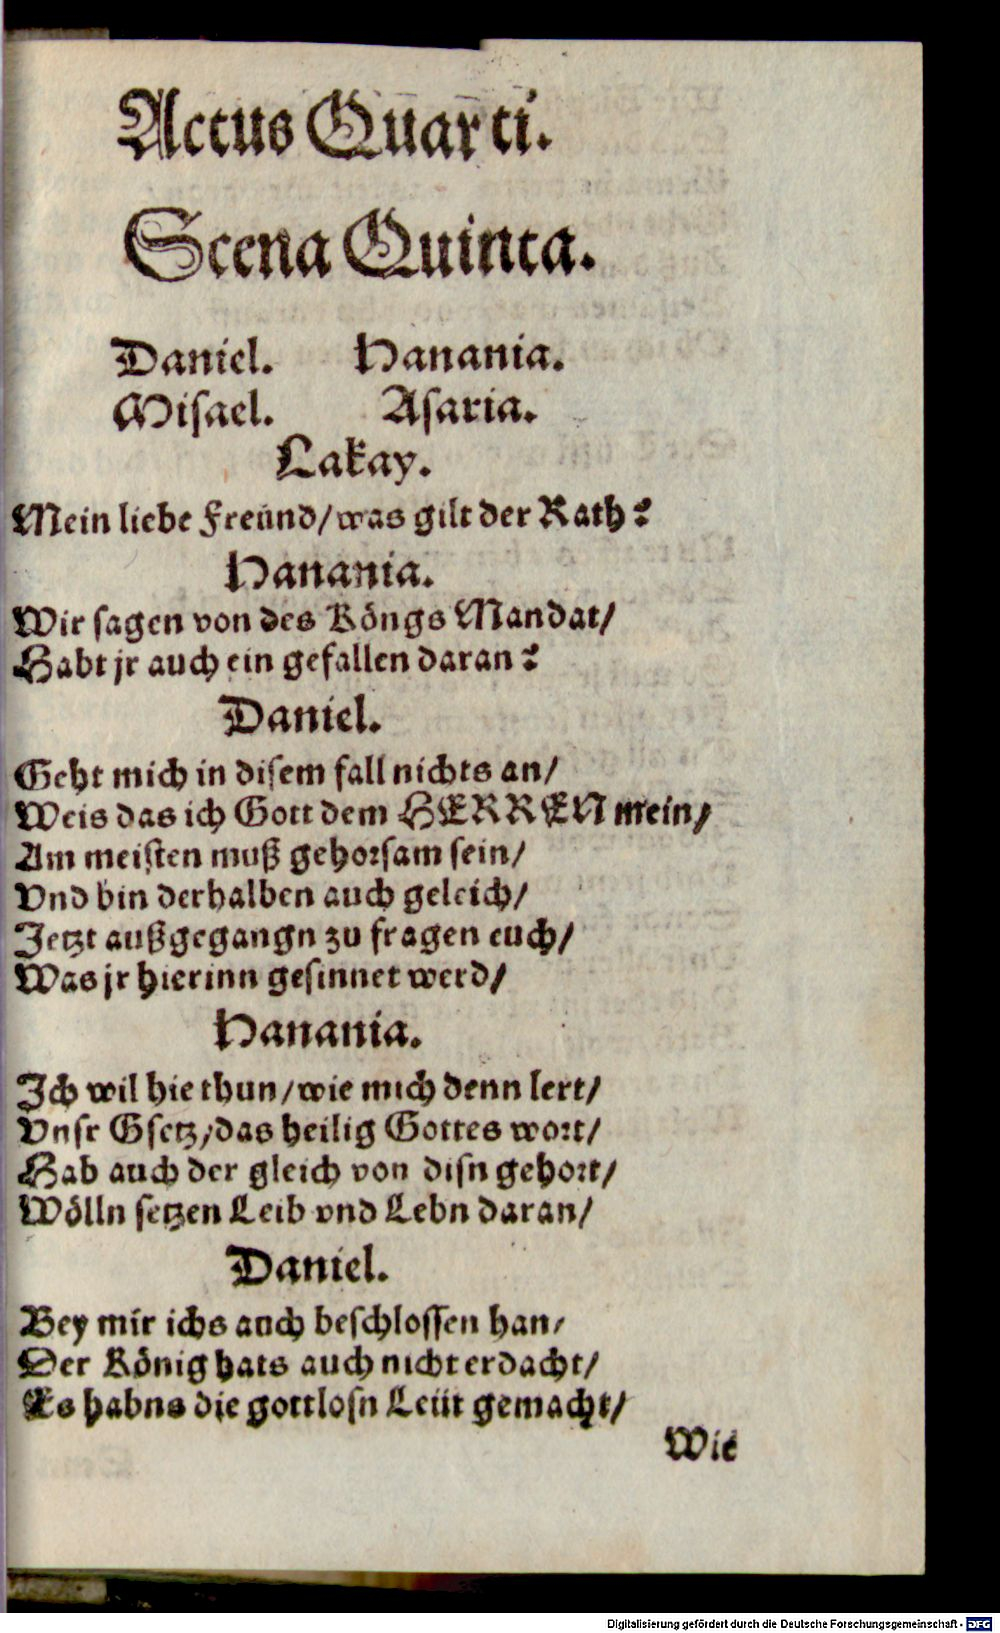 Actus Quarti.
Scena Quinta.
Daniel. Hanania.
Misael. Asaria.
Lakay.
Mein liebe Freünd/was gilt der Rath?
Hanania.
Wir sagen von des Köngs Mandat/
Habt jr auch ein gefallen daran?
Daniel.
Geht mich in disem fall nichts an/
Weis das ich Gott dem HERREN mein/
Am meisten muß gehorsam sein/
Vnd bin derhalben auch geleich/
Jetzt außgegangn zu fragen euch/
Was jr hierinn gesinnet werd/
Hanania.
Ich wil hie thun/wie mich denn lert/
Vnsr Gsetz/das heilig Gottes wort/
Hab auch der gleich von disn gehort/
Wölln setzen Leib vnd Lebn daran/
Daniel.
Bey mir ichs auch beschlossen han/
Der König hats auch nicht erdacht/
Es habns die gottlosn Leüt gemacht/
Wie
Digitalisierung gefördert durch die Deutsche Forschungsgemeinschaft - DFG